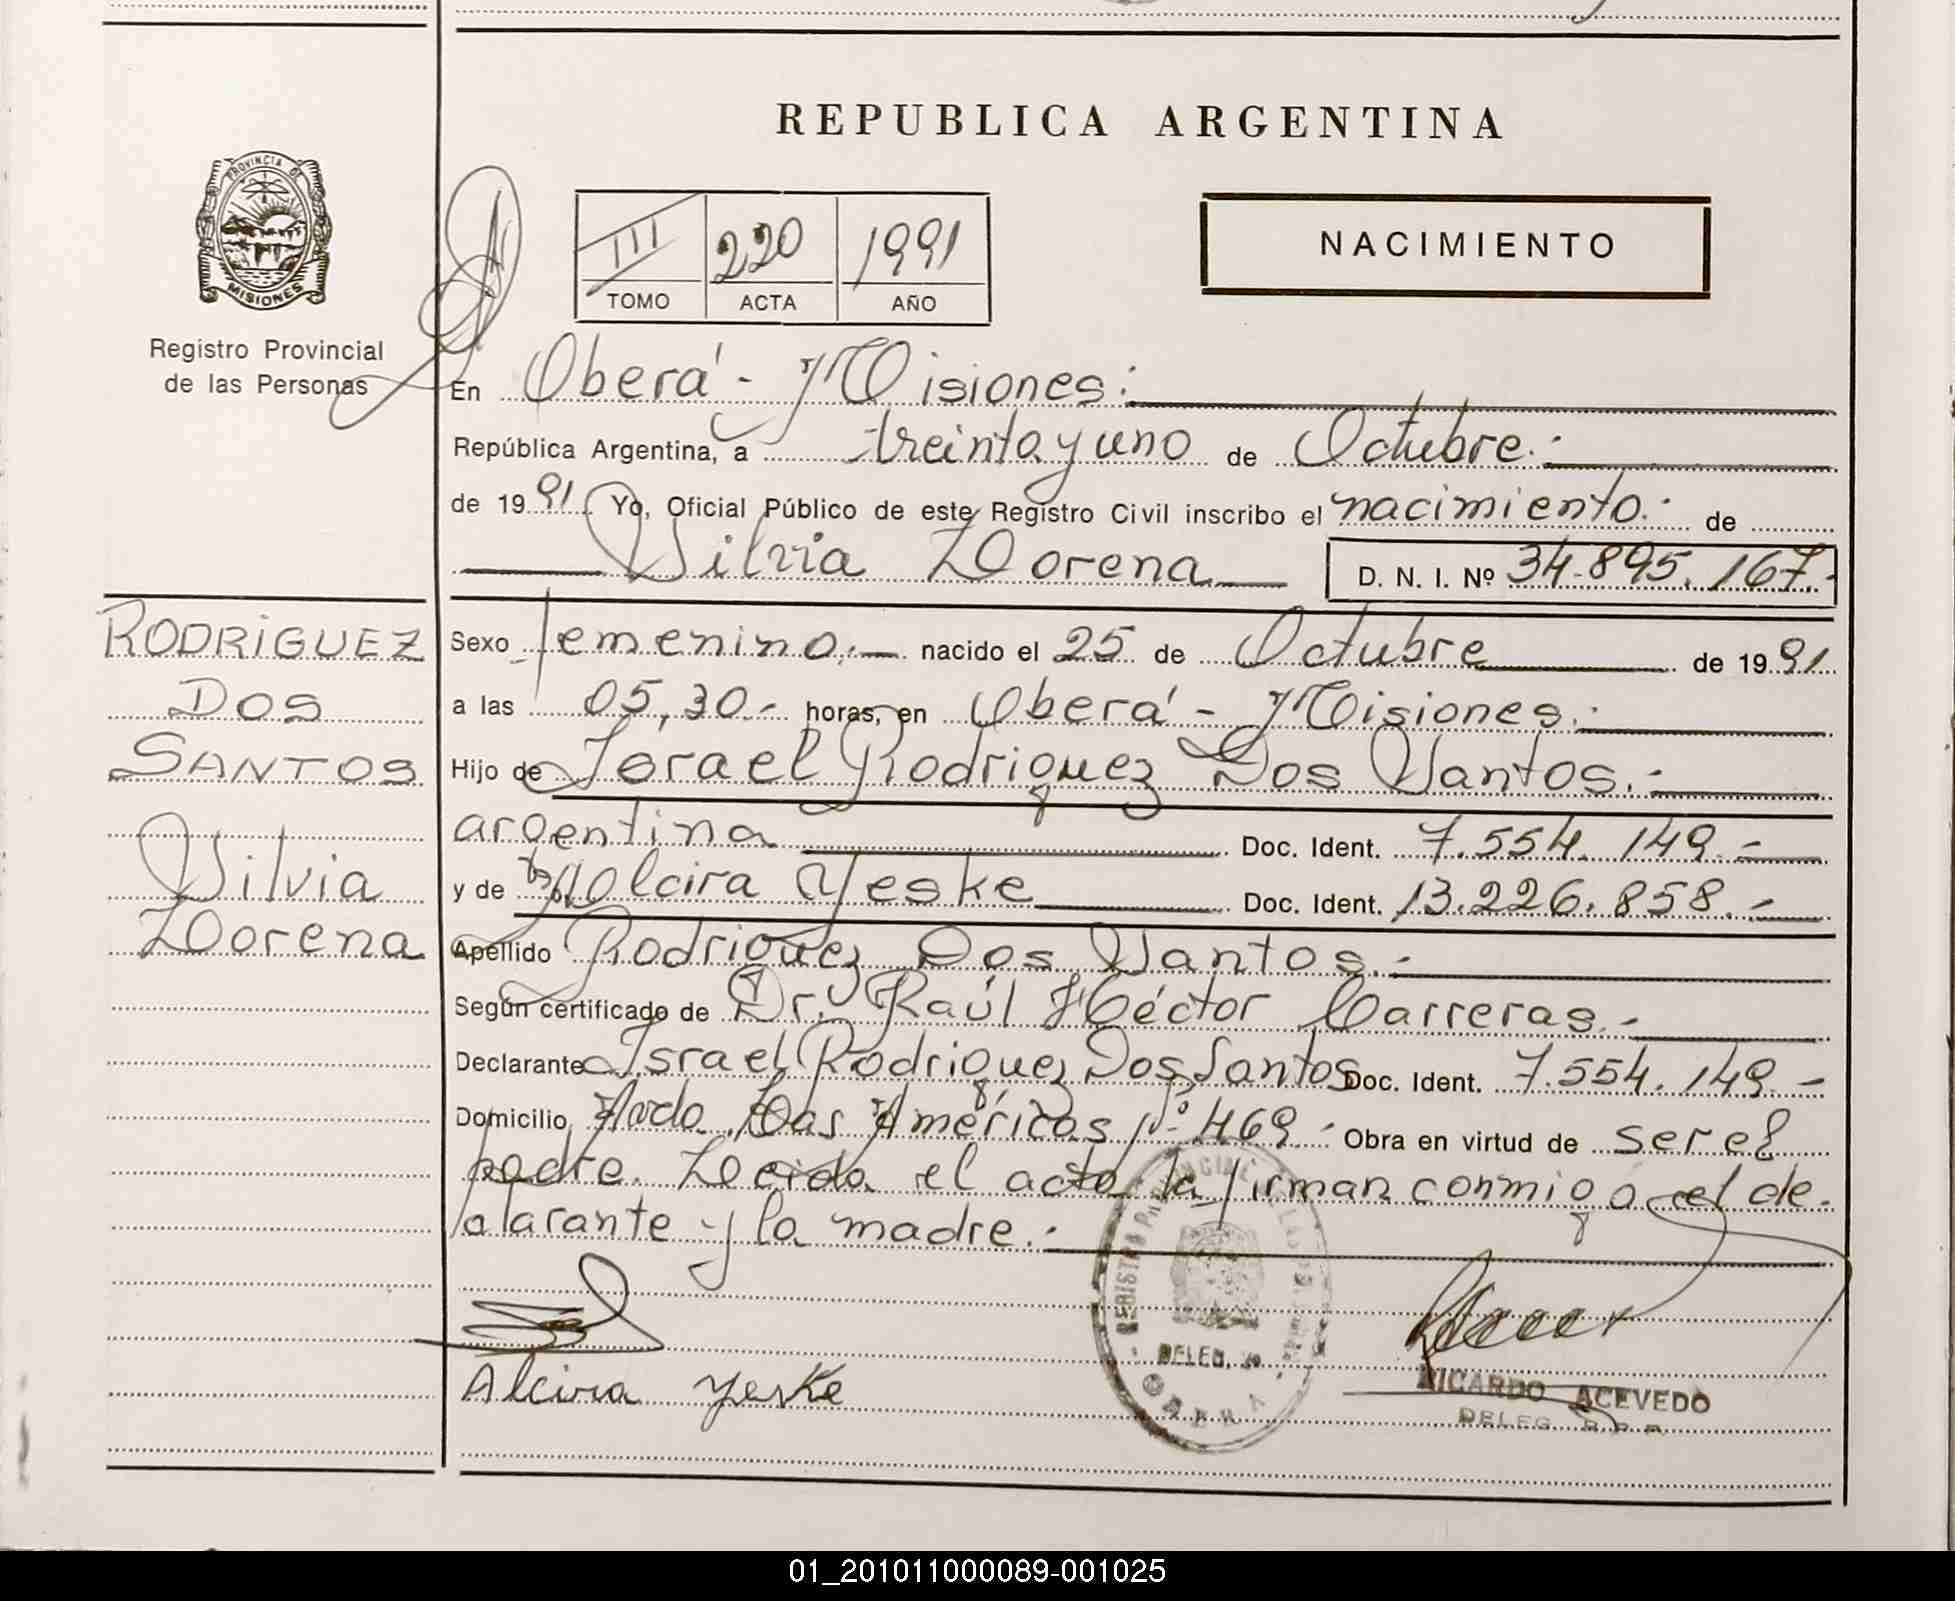 REPUBLICA ARGENTINA
PROVINCIA DE
MISIONES
Registro Provincial
de las Personas
III 220 1991
TOMO ACTA AÑO
NACIMIENTO
En Oberá - Misiones:
República Argentina, a treinta y uno de Octubre.-
de 1991 Yo, Oficial Público de este Registro Civil inscribo el nacimiento.- de
Silvia Lorena D. N. I. Nº 34.895.167.-
RODRIGUEZ
DOS
SANTOS
Silvia
Lorena
Sexo femenino.- nacido el 25 de Octubre de 1991
a las 05,30.- horas, en Oberá - Misiones.-
Hijo de Israel Rodriguez Dos Santos.-
argentina Doc. Ident. 7.554.149.-
y de Alcira Yeske Doc. Ident. 13.226.858.-
Apellido Rodriguez Dos Santos.-
Según certificado de Dr. Raúl Héctor Carreras.-
Declarante Israel Rodriguez Dos Santos Doc. Ident. 7.554.149.-
Domicilio Avda. Las Américas Nº 469.- Obra en virtud de ser el
padre. Leida el acta la firman conmigo el de-
clarante y la madre.-
REGISTRO PROVINCIAL DE LAS
DELEG.
OBERA
Alcira Yeske
RICARDO ACEVEDO
DELEG. R.P.P.
01_201011000089-001025